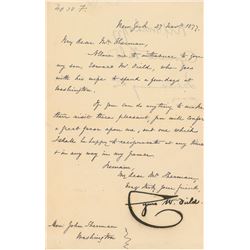 New York 27 Nov. 1877.
My dear Mr Sherman,
Allow me to introduce to you
my son Edward M. Field, who goes
with his wife to spend a few days at
Washington.
If you can do anything to make
their visit there pleasant, you will confer
a great favor upon me, and one which
I shall be happy to reciprocate at any time
& in any way in my power.
I remain,
My dear Mr Sherman,
Very truly your friend,
Cyrus W. Field
Hon John Sherman
Washington